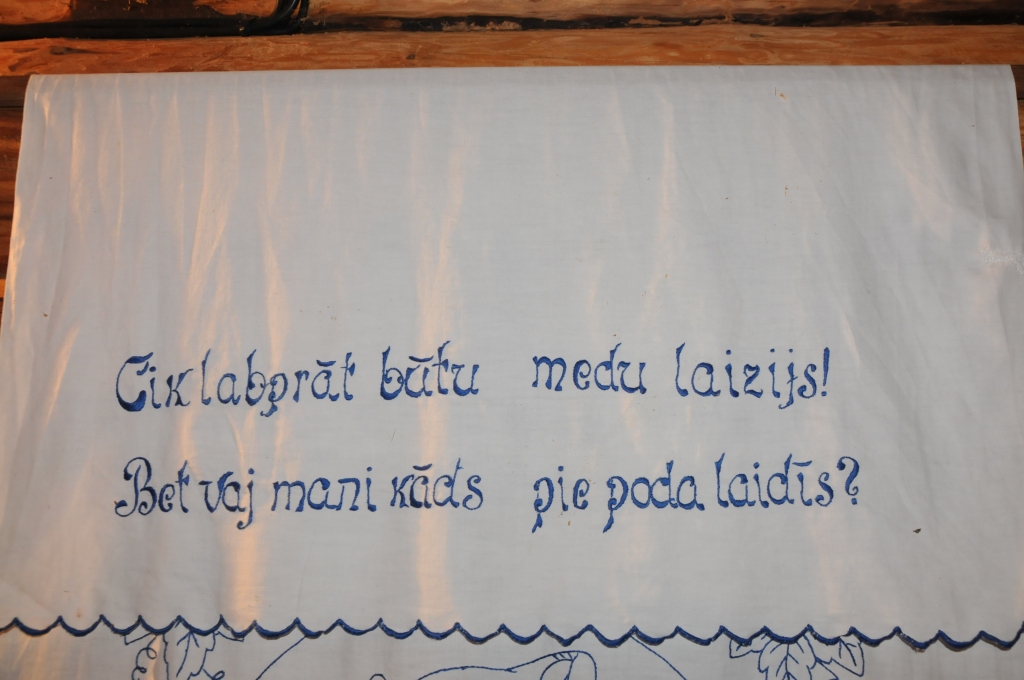 Cik labprāt būtu medu laizijs!
Bet vaj mani kāds pie poda laidīs?